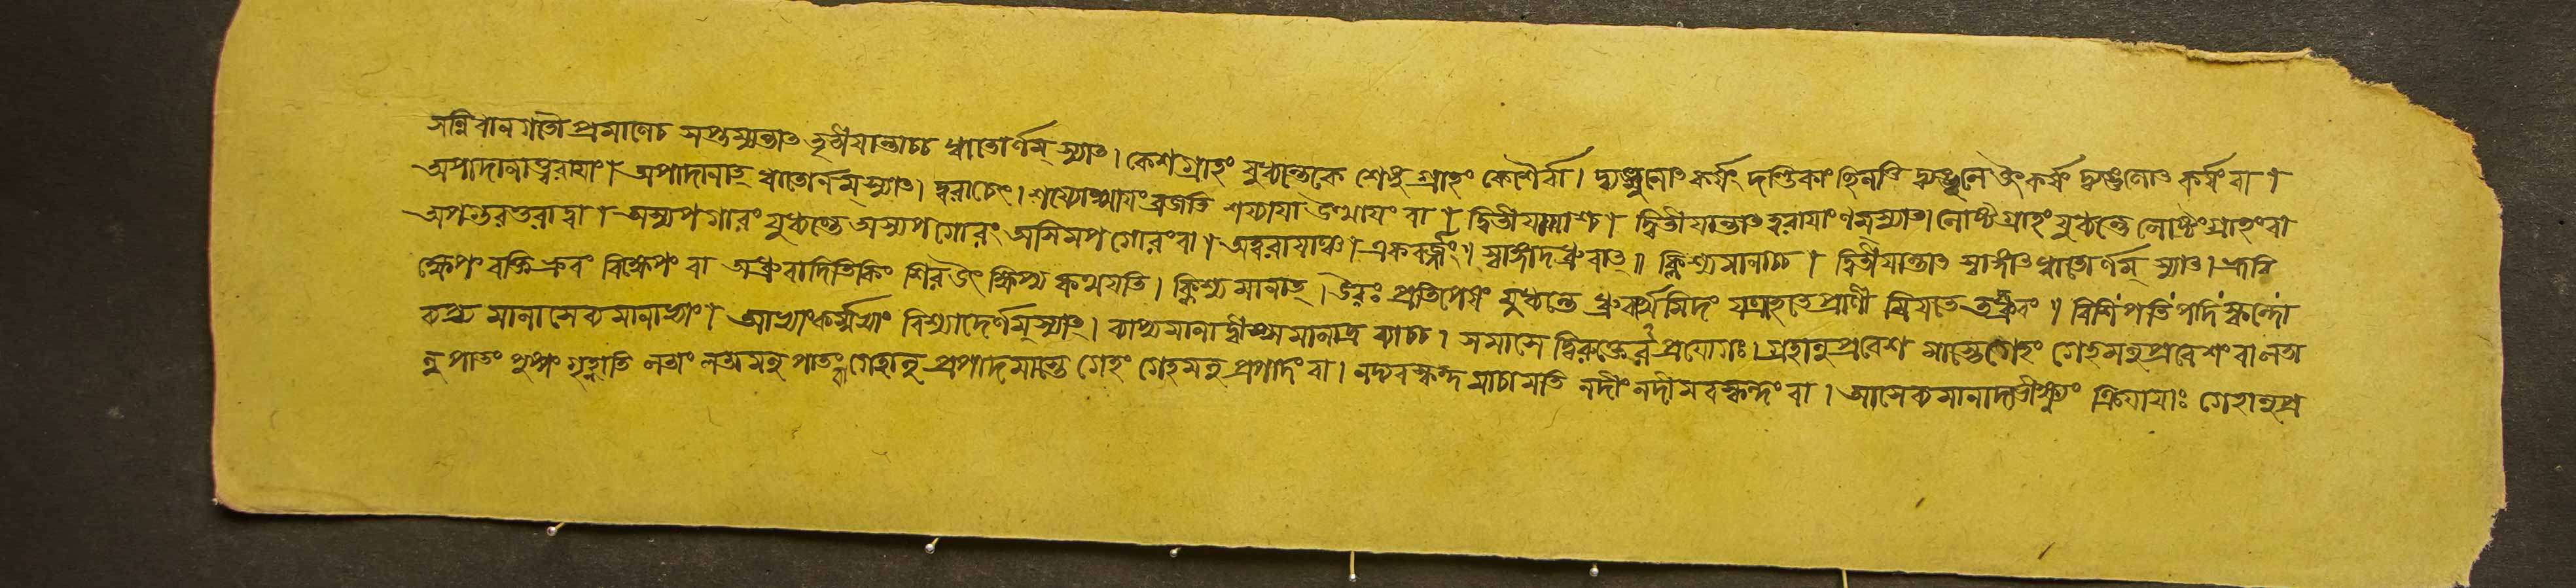 সন্নিধানগতৌ প্রমাণেচ সপ্তম্যন্তাৎ তৃতীযান্তাচ্চ ধাতোর্ণম্ স্যাৎ। কেশগ্রাহং যুধ্যন্তেকে শেষু গ্রাহং কেশৈর্বা। দ্ব্যঙ্গুলোৎ কর্ষং দণ্ডিকাং ছিনত্তি দ্ব্যঙ্গুলে উৎকর্ষং দ্ব্যঙ্গুলোৎ কর্ষংবা।
অপাদানাত্ত্বরাযাং। অপাদানাত্ ধাতোর্ণম্ স্যাৎ। ত্বরাচেৎ। শয্যোত্থাযং ব্রজতি শয্যাযা উত্থাযং বা। দ্বিতীযাযাশ্চ। দ্বিতীযান্তাৎ ত্বরাযাং ণম্ স্যাৎ। লোষ্টগ্রাহং যুধ্যন্তে লোষ্টংগ্রাহংবা
অপগুরতেরাদ্বা। অস্যপগারং যুধ্যন্তে অস্যপগোরং অসিমপগোরংবা। অত্বরাযাঞ্চ। একবর্জ্জং॥ স্বাঙ্গাদধ্রুবাৎ॥ ক্লিশ্যমানাচ্চ। দ্বিতীযান্তাৎ স্বাঙ্গাৎ ধাতোর্ণম্ স্যাৎ। ভ্রূবি
ক্ষেপং বক্তি ভ্রুবং বিক্ষেপং বা অধ্রুবাদিতিকিং শির উৎ ক্ষিপ্য কথযতি। ক্লিশ্যমানাত্। উরঃ প্রতিপেষং যুধ্যন্তে ধ্রুবার্থমিদং যত্রাহতেপ্রাণী ম্রিযতে তদ্ধ্রুবং॥ বিশিপতিপদিস্কন্দো
ব্যাপ্য মানাসেব্যমানাখ্যাং। আখ্যাৎকর্ম্মখ্যাং বিশ্যাদের্ণম্ স্যাৎ। ব্যাপ্যমানাদ্বীপ্স্যমানাদ্দ্র ব্যাচ্চ। সমাসে দ্বিরুক্তের্ন প্রযোগঃ। গ্রহানুপ্রবেশ মাস্তেগেহং গেহমনুপ্রবেশং বা লতা
নু পাতং পুষ্পং গৃহ্ণাতি লতাং লতামনু পাতং বা গেহানু প্রপাদমাস্তে গেহং গেহমনু প্রপাদং বা। নদ্যবস্কন্দ মাচামতি নদীং নদীমবস্কন্দং বা। আসেব্যমানাদভীক্ষ্ণ্যং ক্রিযাযাঃ গেহানুপ্র